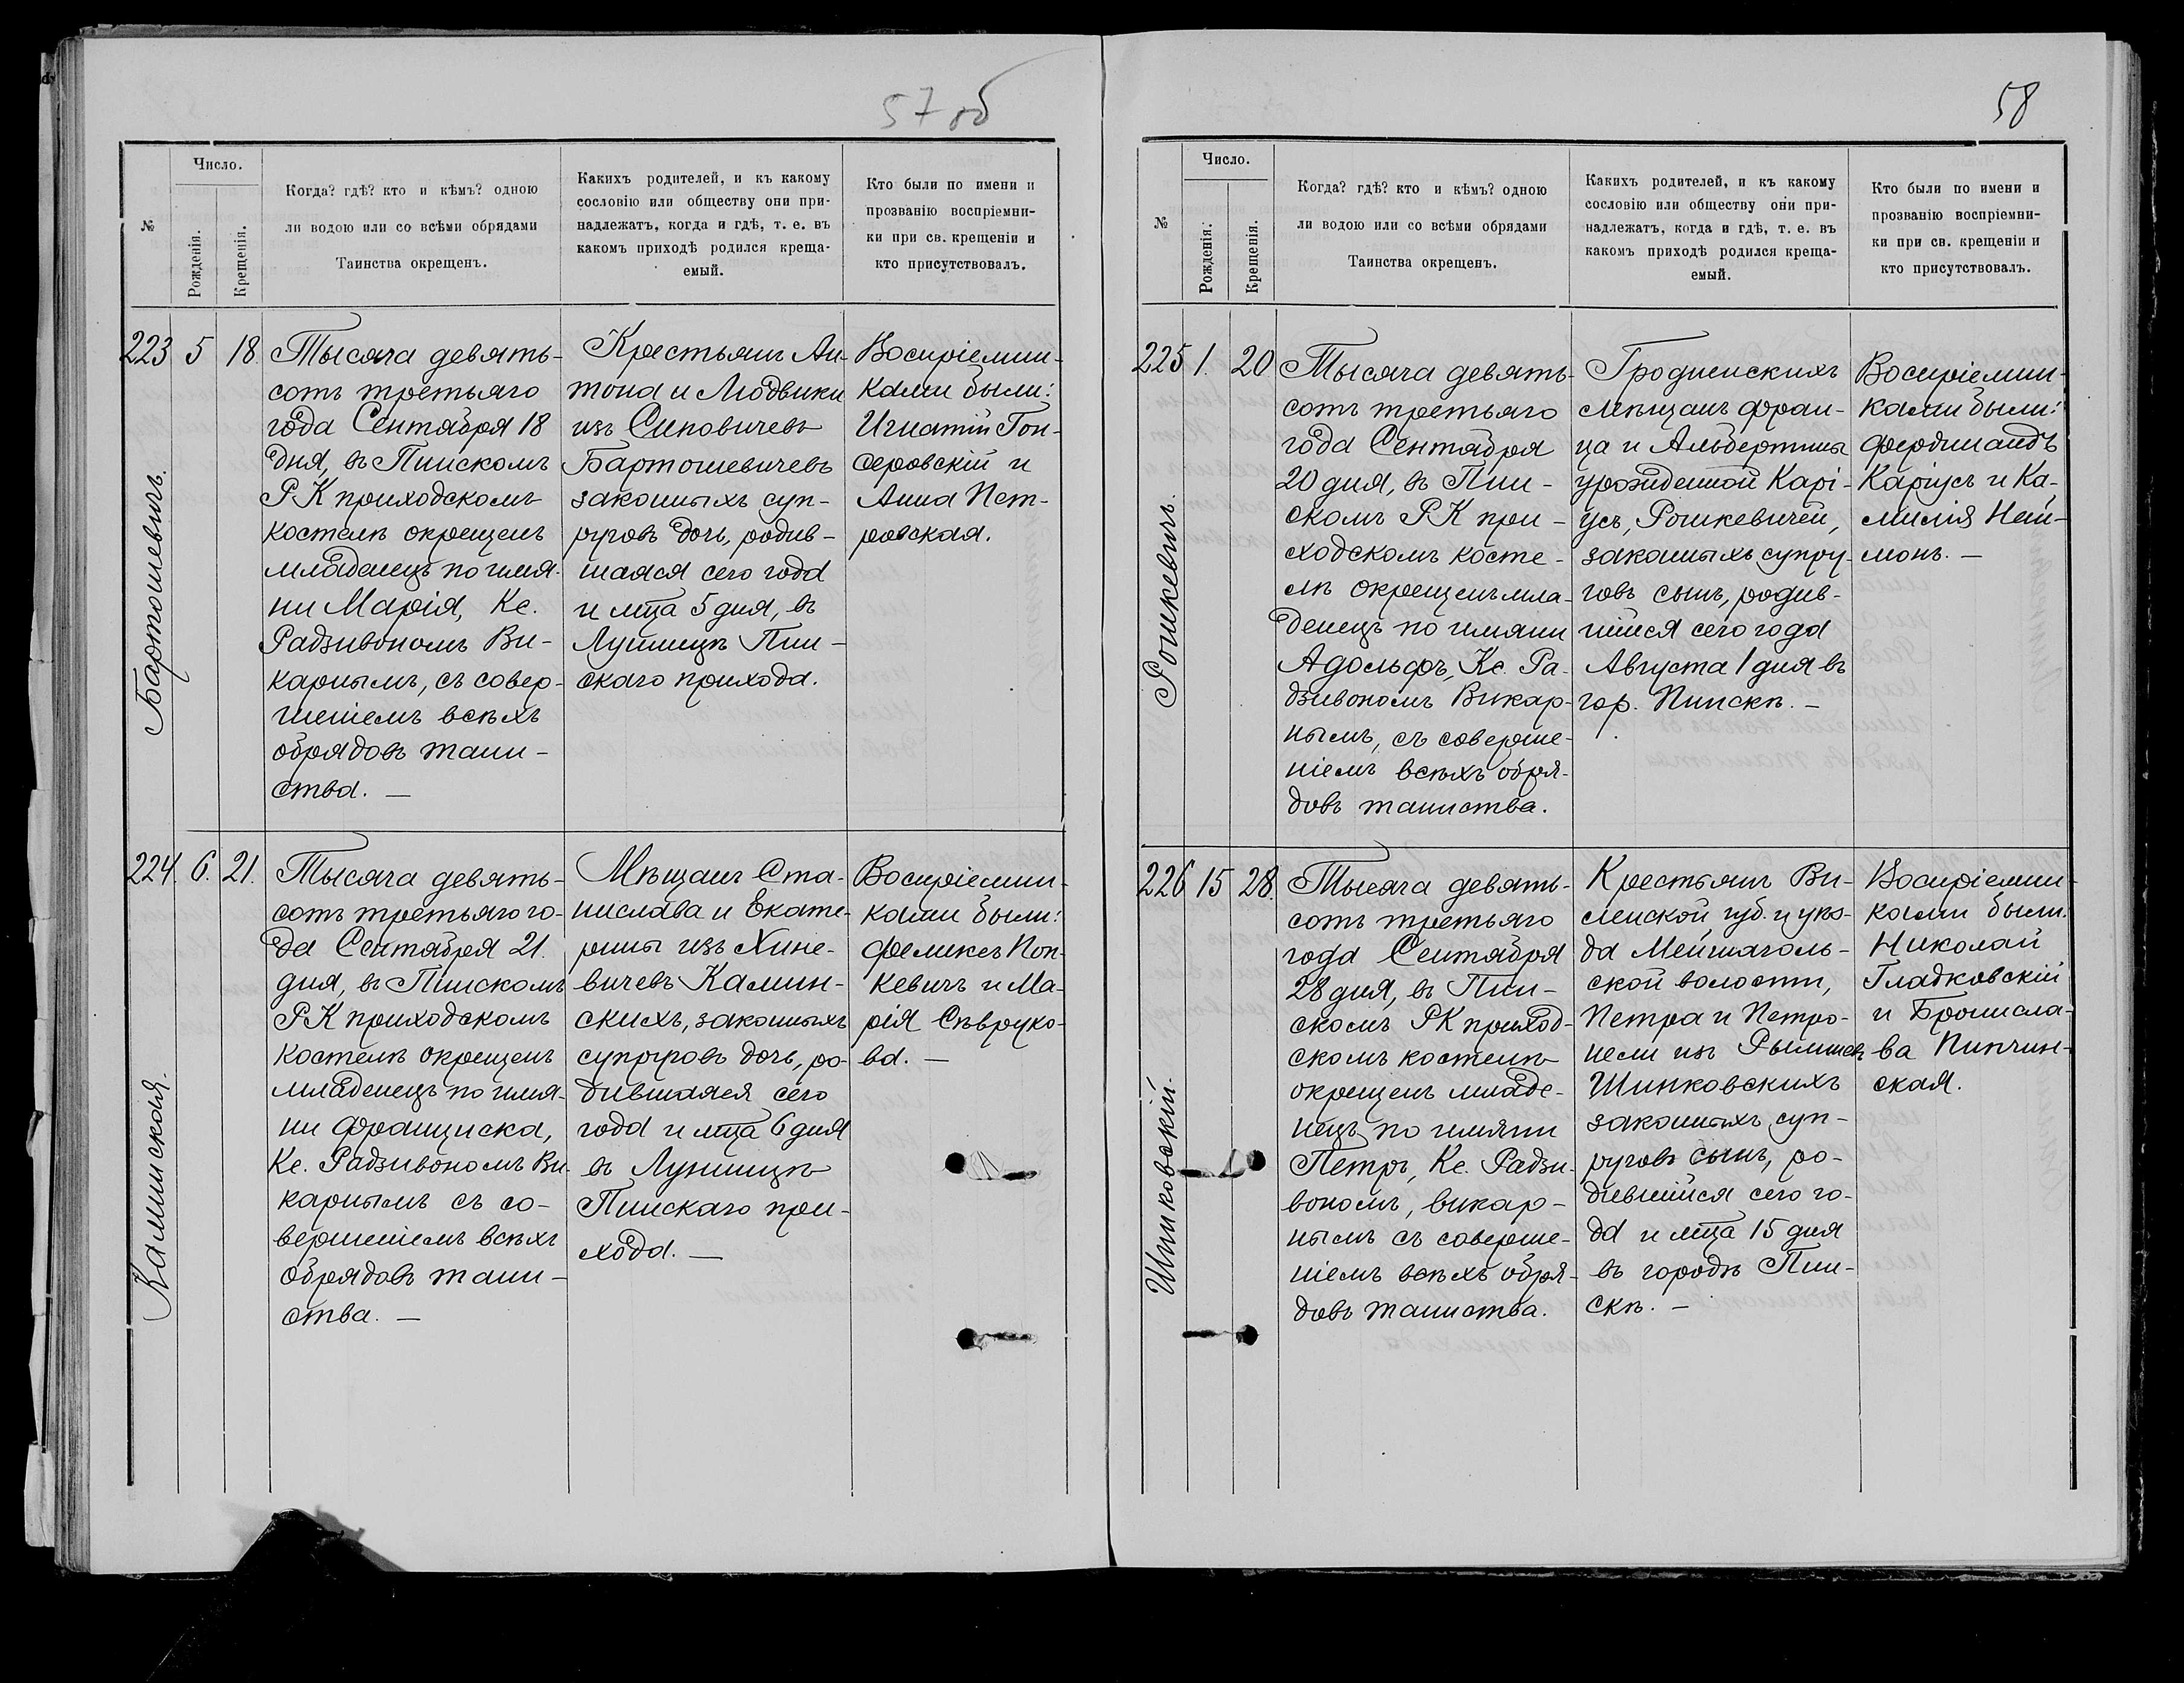 57 об
№
Число.
Рожденія.
Крещенія.
Когда? гдѣ? кто и кѣмъ? одною
ли водою или со всѣми обрядами
Таинства окрещенъ.
Какихъ родителей, и къ какому
сословію или обществу они при-
надлежатъ, когда и гдѣ, т. е. въ
какомъ приходѣ родился креща-
емый.
Кто были по имени и
прозванію воспріемни-
ки при св. крещеніи и
кто присутствовалъ.
223 5 18.
Бартошевичъ.
Тысяча девять-
сотъ третьяго
года Сентября 18
дня, въ Пинскомъ
РК приходскомъ
костелѣ окрещенъ
младенецъ по имя-
ни Марія, Кс.
Радзивономъ Ви-
карнымъ, съ совер-
шеніемъ всѣхъ
обрядовъ таин-
ства. —
Крестьянъ Ан-
тона и Людвики
изъ Синовичевъ
Бартошевичевъ
законныхъ суп-
руговъ дочь, родив-
шаяся сего года
и мца 5 дня, въ
Лунинцѣ Пин-
скаго прихода.
Воспріемни-
ками были:
Игнатій Гон-
серовскій и
Анна Пет-
ровская.
224. 6. 21.
Калинская.
Тысяча девять-
сотъ третьяго го-
да Сентября 21.
дня, въ Пинскомъ
РК приходскомъ
костелѣ окрещенъ
младенецъ по имя-
ни Франциска,
Кс. Радзивономъ Ви-
карнымъ съ со-
вершеніемъ всѣхъ
обрядовъ таин-
ства. —
Мѣщанъ Ста-
нислава и Екате-
рины изъ Хине-
вичевъ Калин-
скихъ, законныхъ
супруговъ дочь, ро-
дившаяся сего
года и мца 6 дня
въ Лунинцѣ
Пинскаго при-
хода. —
Воспріемни-
ками были:
Феликсъ Поп-
кевичъ и Ма-
рія Сѣвруко-
ва. —
58
№
Число.
Рожденія.
Крещенія.
Когда? гдѣ? кто и кѣмъ? одною
ли водою или со всѣми обрядами
Таинства окрещенъ.
Какихъ родителей, и къ какому
сословію или обществу они при-
надлежатъ, когда и гдѣ, т. е. въ
какомъ приходѣ родился креща-
емый.
Кто были по имени и
прозванію воспріемни-
ки при св. крещеніи и
кто присутствовалъ.
225 1. 20
Рошкевичъ.
Тысяча девять-
сотъ третьяго
года Сентября
20 дня, въ Пин-
скомъ РК при-
ходскомъ косте-
лѣ окрещенъ мла-
денецъ по имяни
Адольфъ, Кс. Ра-
дзивономъ Викар-
нымъ, съ соверше-
ніемъ всѣхъ обря-
довъ таинства.
Гродненскихъ
мѣщанъ Фран-
ца и Альбертины
урожденной Карі-
усъ, Рошкевичей,
законныхъ супру-
говъ сынъ, родив-
шійся сего года
Августа 1 дня въ
гор. Пинскѣ. —
Воспріемни-
ками были:
Фердинандъ
Каріусъ и Ка-
милія Ней-
монъ. —
226 15 28.
Шинковскій.
Тысяча девять-
сотъ третьяго
года Сентября
28 дня, въ Пин-
скомъ РК приход-
скомъ костелѣ
окрещенъ младе-
нецъ по имяни
Петръ, Кс. Радзи-
вономъ, викар-
нымъ съ соверше-
ніемъ всѣхъ обря-
довъ таинства.
Крестьянъ Ви-
ленской губ. и уѣз-
да Мейшаголь-
ской волости,
Петра и Петро-
нели изъ
Шинковскихъ
законныхъ суп-
руговъ сынъ, ро-
дившійся сего го-
да и мца 15 дня
въ городѣ Пин-
скѣ. —
Воспріемни-
ками были:
Николай
Гладковскій
и Бронисла-
ва Пипчин-
ская.